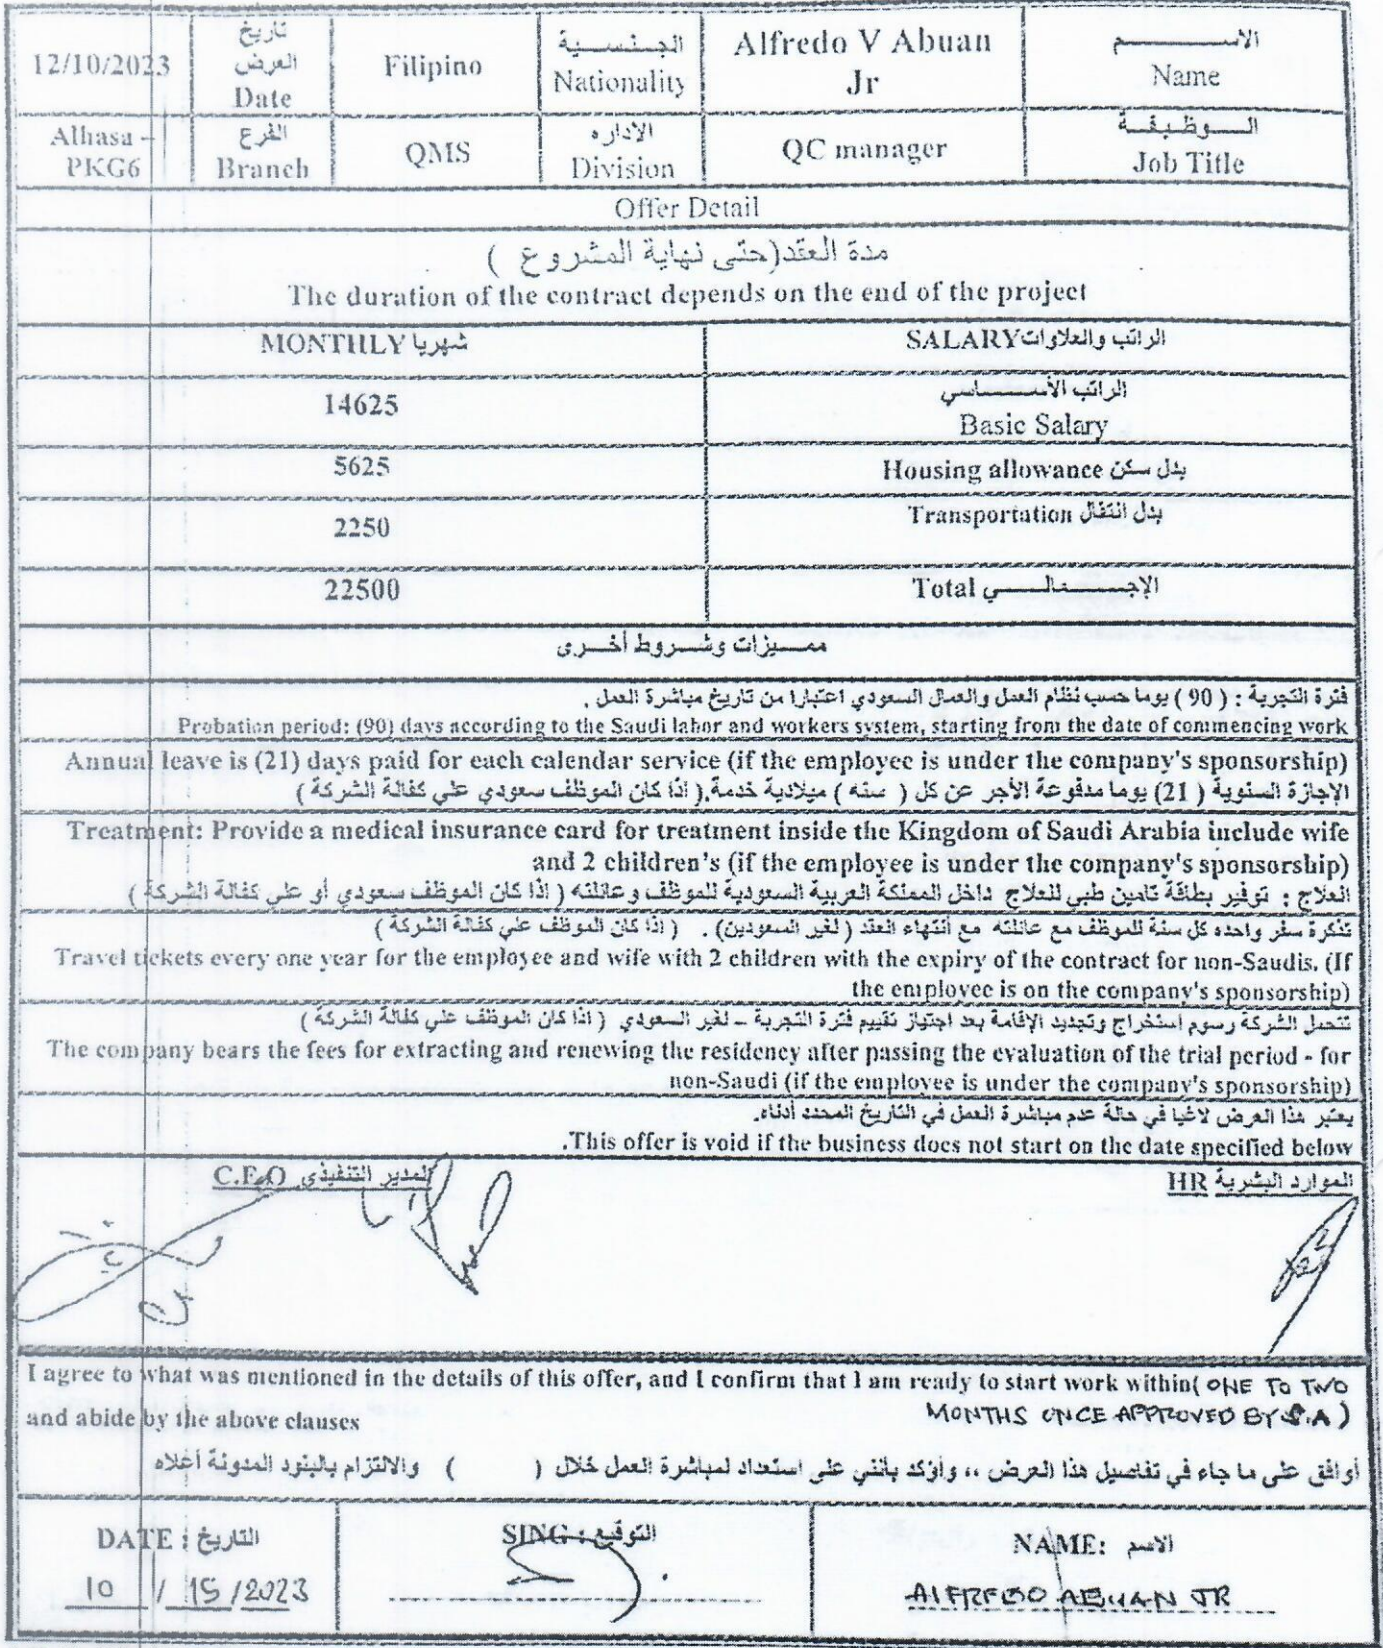 12/10/2023
تاريخ العرض
Date
Filipino
الجنسية
Nationality
Alfredo V Abuan
Jr
الاسم
Name
Alhasa –
PKG6
الفرع
Branch
QMS
الاداره
Division
QC manager
الوظيفة
Job Title
Offer Detail
مدة العقد(حتى نهاية المشروع )
The duration of the contract depends on the end of the project
MONTHLY شهريا
الراتب والعلاوات SALARY
14625
الراتب الأساسي
Basic Salary
5625
بدل سكن Housing allowance
2250
بدل انتقال Transportation
22500
الإجمالي Total
مميزات وشروط أخرى
فترة التجربة : ( 90 ) يوما حسب نظام العمل والعمال السعودي اعتبارا من تاريخ مباشرة العمل .
Probation period: (90) days according to the Saudi labor and workers system, starting from the date of commencing work
Annual leave is (21) days paid for each calendar service (if the employee is under the company's sponsorship)
الإجازة السنوية ( 21) يوما مدفوعة الأجر عن كل ( سنه ) ميلادية خدمة.( اذا كان الموظف سعودي علي كفالة الشركة )
Treatment: Provide a medical insurance card for treatment inside the Kingdom of Saudi Arabia include wife
and 2 children's (if the employee is under the company's sponsorship)
العلاج : توفير بطاقة تامين طبي للعلاج داخل المملكة العربية السعودية للموظف وعائلته ( اذا كان الموظف سعودي أو علي كفالة الشركة )
تذكرة سفر واحده كل سنة للموظف مع عائلته مع أنتهاء العقد ( لغير السعودين) . ( اذا كان الموظف علي كفالة الشركة )
Travel tickets every one year for the employee and wife with 2 children with the expiry of the contract for non-Saudis. (If
the employee is on the company's sponsorship)
تتحمل الشركة رسوم استخراج وتجديد الإقامة بعد اجتياز تقييم فترة التجربة – لغير السعودي ( اذا كان الموظف علي كفالة الشركة )
The company bears the fees for extracting and renewing the residency after passing the evaluation of the trial period - for
non-Saudi (if the employee is under the company's sponsorship)
يعتبر هذا العرض لاغيا في حالة عدم مباشرة العمل في التاريخ المحدد أدناه.
.This offer is void if the business does not start on the date specified below
المدير التنفيذي C.E.O
الموارد البشرية HR
I agree to what was mentioned in the details of this offer, and I confirm that I am ready to start work within( ONE TO TWO
MONTHS ONCE APPROVED BY S.A )
and abide by the above clauses
أوافق على ما جاء في تفاصيل هذا العرض ،، وأؤكد بأنني على استعداد لمباشرة العمل خلال ( ) والالتزام بالبنود المدونة أعلاه
DATE : التاريخ
SING : التوقيع
NAME: الاسم
10 / 15 /2023
ALFREDO ABUAN JR